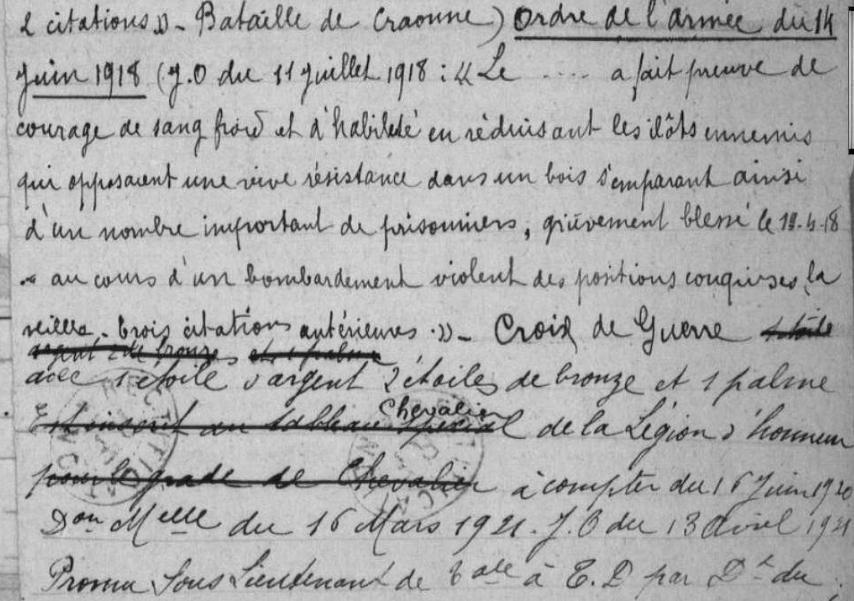 2 citations » - Bataille de Craonne) Ordre de l'armée du 14
Juin 1918 (J.O du 11 Juillet 1918 : « Le .... a fait preuve de
courage de sang froid et d'habileté en réduisant les ilôts ennemis
qui opposaient une vive résistance dans un bois s'emparant ainsi
d'un nombre important de prisonniers, grièvement blessé le 19.4.18
au cours d'un bombardement violent des positions conquises la
veille - trois citations antérieures » - Croix de Guerre 1 étoile
argent 2 de bronze et 1 palme
avec 1 étoile d'argent 2 étoiles de bronze et 1 palme
Chevalier
Est inscrit au tableau spécial de la Légion d'honneur
pour le grade de Chevalier à compter du 16 Juin 1920
Don Melle du 16 Mars 1921. J.O du 13 Avril 1921
Promu Sous Lieutenant de rale à T.D par Dt du